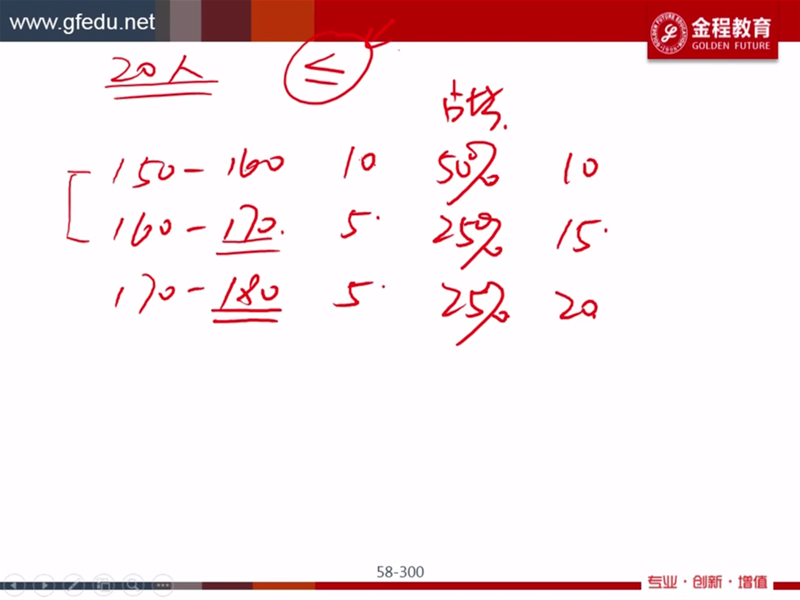 www.gfedu.net
金程教育
GOLDEN FUTURE
20人 ≤
占比
150-160 10 50% 10
160-170 5 25% 15
170-180 5 25% 20
58-300
专业·创新·增值